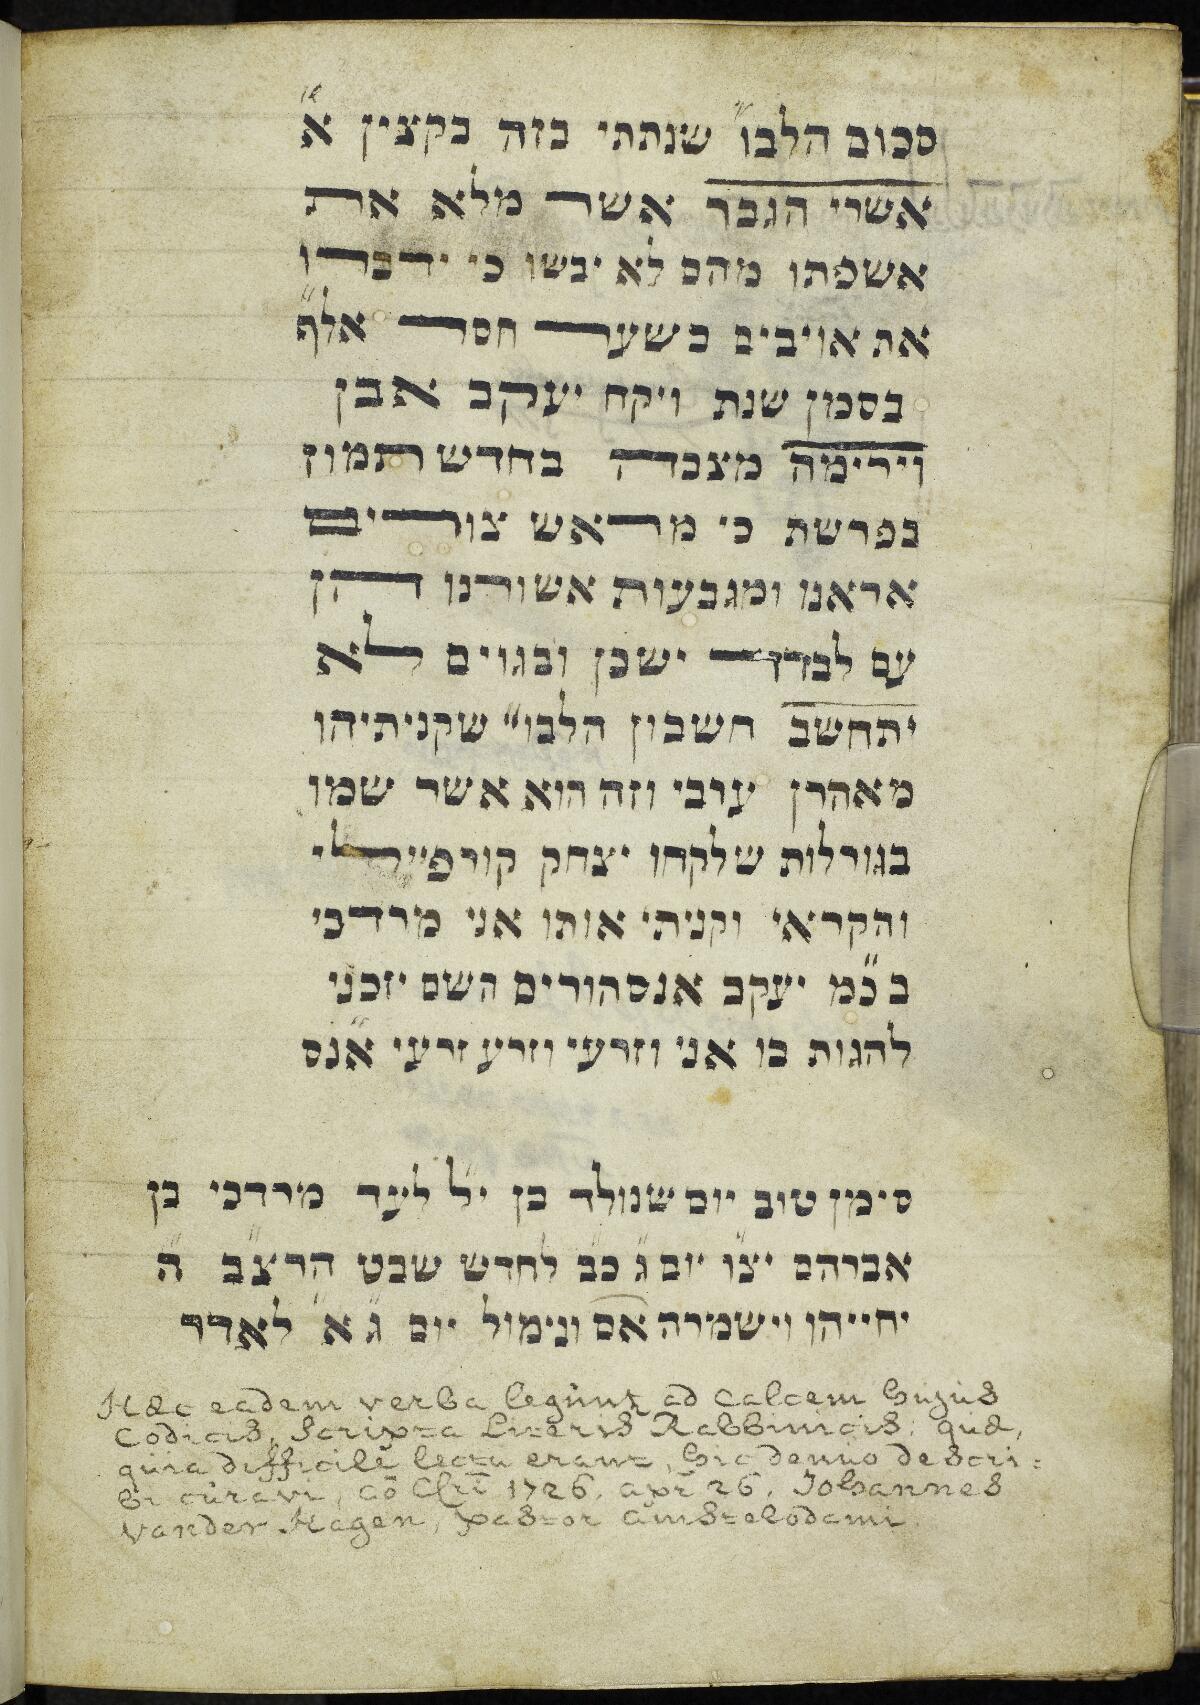 סכום הלבו״ שנתתי בזה בקצין א״
אשרי הגבר אשר מלא את
אשפתו מהם לא יבשו כי ידברו
את אויבים בשער חסר אלף״
בסמן שנת ויקח יעקב אבן
וירימה מצבה בחדש תמוז
בפרשת כי מראש צורים
אראנו ומגבעות אשורנו הן
עם לבדד ישכן ובגוים לא
יתחשב חשבון הלבו״ שקניתיהו
מאהרן ערבי וזה הוא אשר שמו
בגורלות שלקחו יצחק
והקראי וקניתי אותו אני מרדכי
ב כ״מ יעקב השם יזכני
להגות בו אני וזרעי וזרע זרעי א״נס
סימן טוב יום שנולד בן י״ל לעד מרדכי בן
אברהם יצ״ו יום ג״ כ״ב לחדש שבט הרצ״ב ה״
יחייהו וישמרה אס ונימול יום ג״ א״ לאדר
Hæc eadem verba legunt ad calcem hujus
Codicis, Scripta Literis Rabbinicis; quæ,
quia difficile lectu erant, hic denuo descri=
bi curavi, aõ Chrĩ 1726. apr 26. Johannes
vander Hagen, pastor amstelodami.